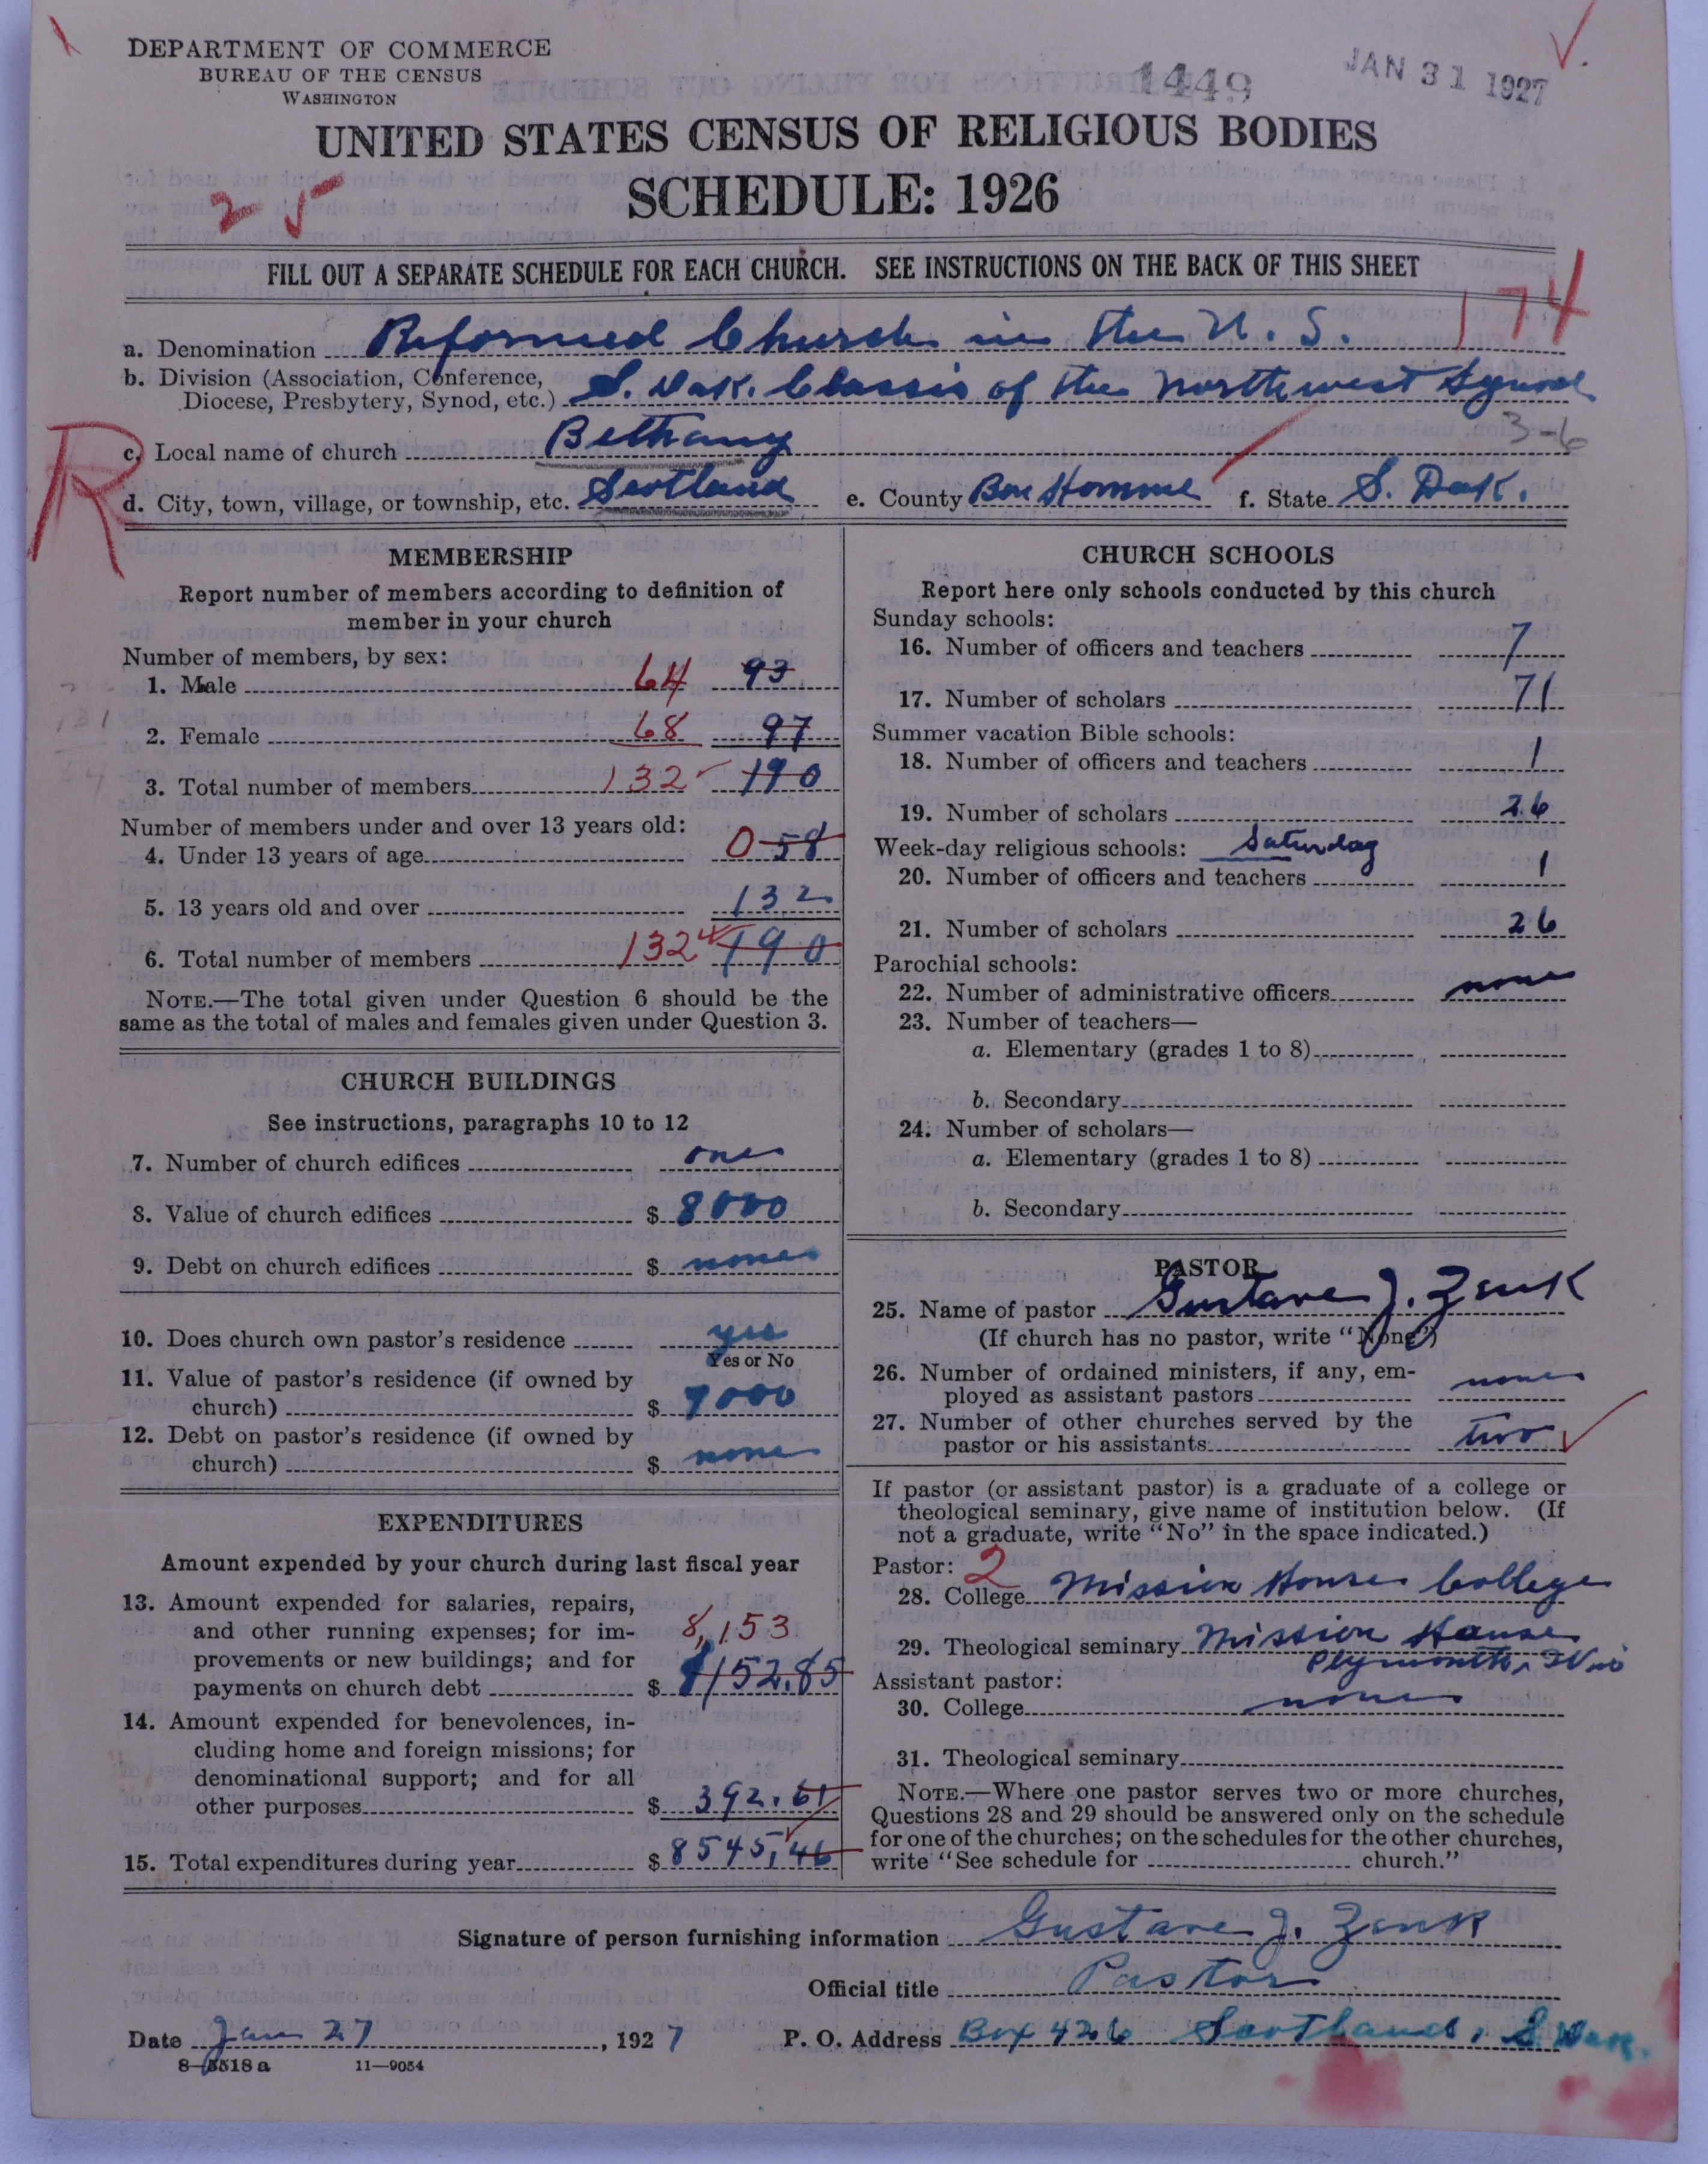 DEPARTMENT OF COMMERCE
BUREAU OF THE CENSUS
WASHINGTON
1449
JAN 31 1927
UNITED STATES CENSUS OF RELIGIOUS BODIES
SCHEDULE: 1926
25
FILL OUT A SEPARATE SCHEDULE FOR EACH CHURCH. SEE INSTRUCTIONS ON THE BACK OF THIS SHEET
174
a. Denomination Reformed Church in the U. S.
b. Division (Association, Conference,
Diocese, Presbytery, Synod, etc.) S. Dak. Classis of the Northwest Synod
3-6
R
c. Local name of church Bethany
d. City, town, village, or township, etc. Scotland e. County Bon Homme f. State S. Dak.
MEMBERSHIP
Report number of members according to definition of
member in your church
Number of members, by sex:
1. Male 64 93
2. Female 68 97
3. Total number of members 132 190
Number of members under and over 13 years old:
4. Under 13 years of age 0 58
5. 13 years old and over 132
6. Total number of members 132 190
NOTE.—The total given under Question 6 should be the
same as the total of males and females given under Question 3.
CHURCH BUILDINGS
See instructions, paragraphs 10 to 12
7. Number of church edifices one
8. Value of church edifices $ 8000
9. Debt on church edifices $ none
10. Does church own pastor's residence yes
Yes or No
11. Value of pastor's residence (if owned by
church) $ 7000
12. Debt on pastor's residence (if owned by
church) $ none
EXPENDITURES
Amount expended by your church during last fiscal year
13. Amount expended for salaries, repairs,
and other running expenses; for im-
8,153
provements or new buildings; and for
payments on church debt $ 8152.85
14. Amount expended for benevolences, in-
cluding home and foreign missions; for
denominational support; and for all
other purposes $ 392.61
15. Total expenditures during year $ 8545,46
CHURCH SCHOOLS
Report here only schools conducted by this church
Sunday schools:
16. Number of officers and teachers 7
17. Number of scholars 71
Summer vacation Bible schools:
18. Number of officers and teachers 1
19. Number of scholars 26
Week-day religious schools: Saturday
20. Number of officers and teachers 1
21. Number of scholars 26
Parochial schools:
22. Number of administrative officers none
23. Number of teachers—
a. Elementary (grades 1 to 8)
b. Secondary
24. Number of scholars—
a. Elementary (grades 1 to 8)
b. Secondary
PASTOR
25. Name of pastor Gustave J. Zenk
(If church has no pastor, write "None")
26. Number of ordained ministers, if any, em-
ployed as assistant pastors none
27. Number of other churches served by the
pastor or his assistants two
If pastor (or assistant pastor) is a graduate of a college or
theological seminary, give name of institution below. (If
not a graduate, write "No" in the space indicated.)
Pastor: 2
28. College Mission House College
29. Theological seminary Mission House
Plymouth, Wis
Assistant pastor:
30. College none
31. Theological seminary
NOTE.—Where one pastor serves two or more churches,
Questions 28 and 29 should be answered only on the schedule
for one of the churches; on the schedules for the other churches,
write "See schedule for church."
Signature of person furnishing information Gustave J. Zenk
Official title Pastor
Date Jan 27, 1927 P. O. Address Box 426 Scotland, S. Dak.
8-5518 a 11-9054